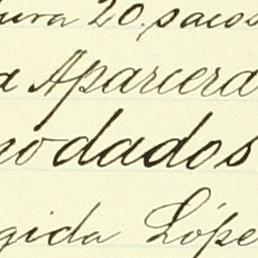 ura 20. sacos
a Aparcera
no dados
gida Lópe